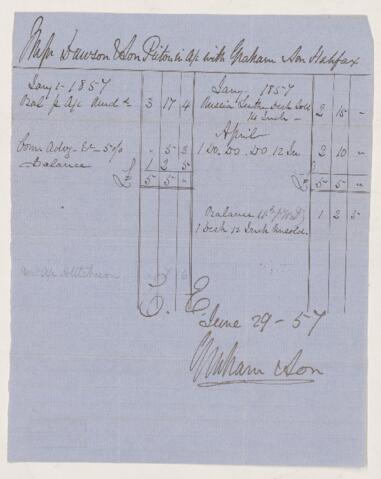 Messrs Dawson & Son Pictou in A/c with Graham & Son Halifax
Jany 1 - 1857
Bal pr A/c Rend 3 17 4
Com Advg &c 5 % - 5 3
Balance £ 1 2 5
£ 5 5 -
Jany 1857
Desk Sold
14 Inch - 2 15 -
April
1 Do. Do. Do 12 In 2 10 -
£ 5 5 -
Balance 1 2 5
1 Desk 12 Inch Unsold
E. E.
June 29 - 57
Graham & Son